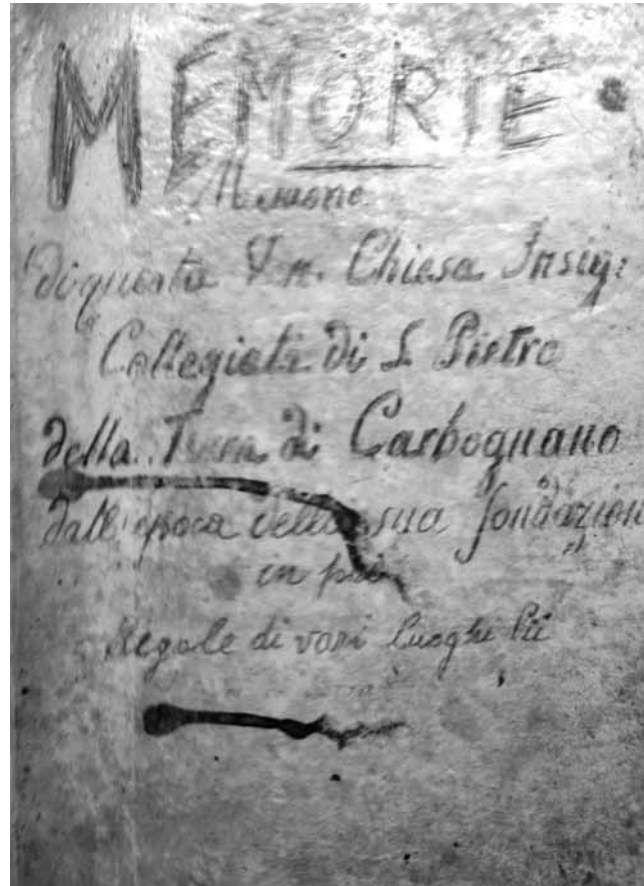 MEMORIE.
Memorie
di questa Ven. Chiesa Insig:
Collegiata di S. Pietro
della Terra di Carbognano
dall'epoca della sua fondazion
in poi
Regole di vari Luoghi Pii